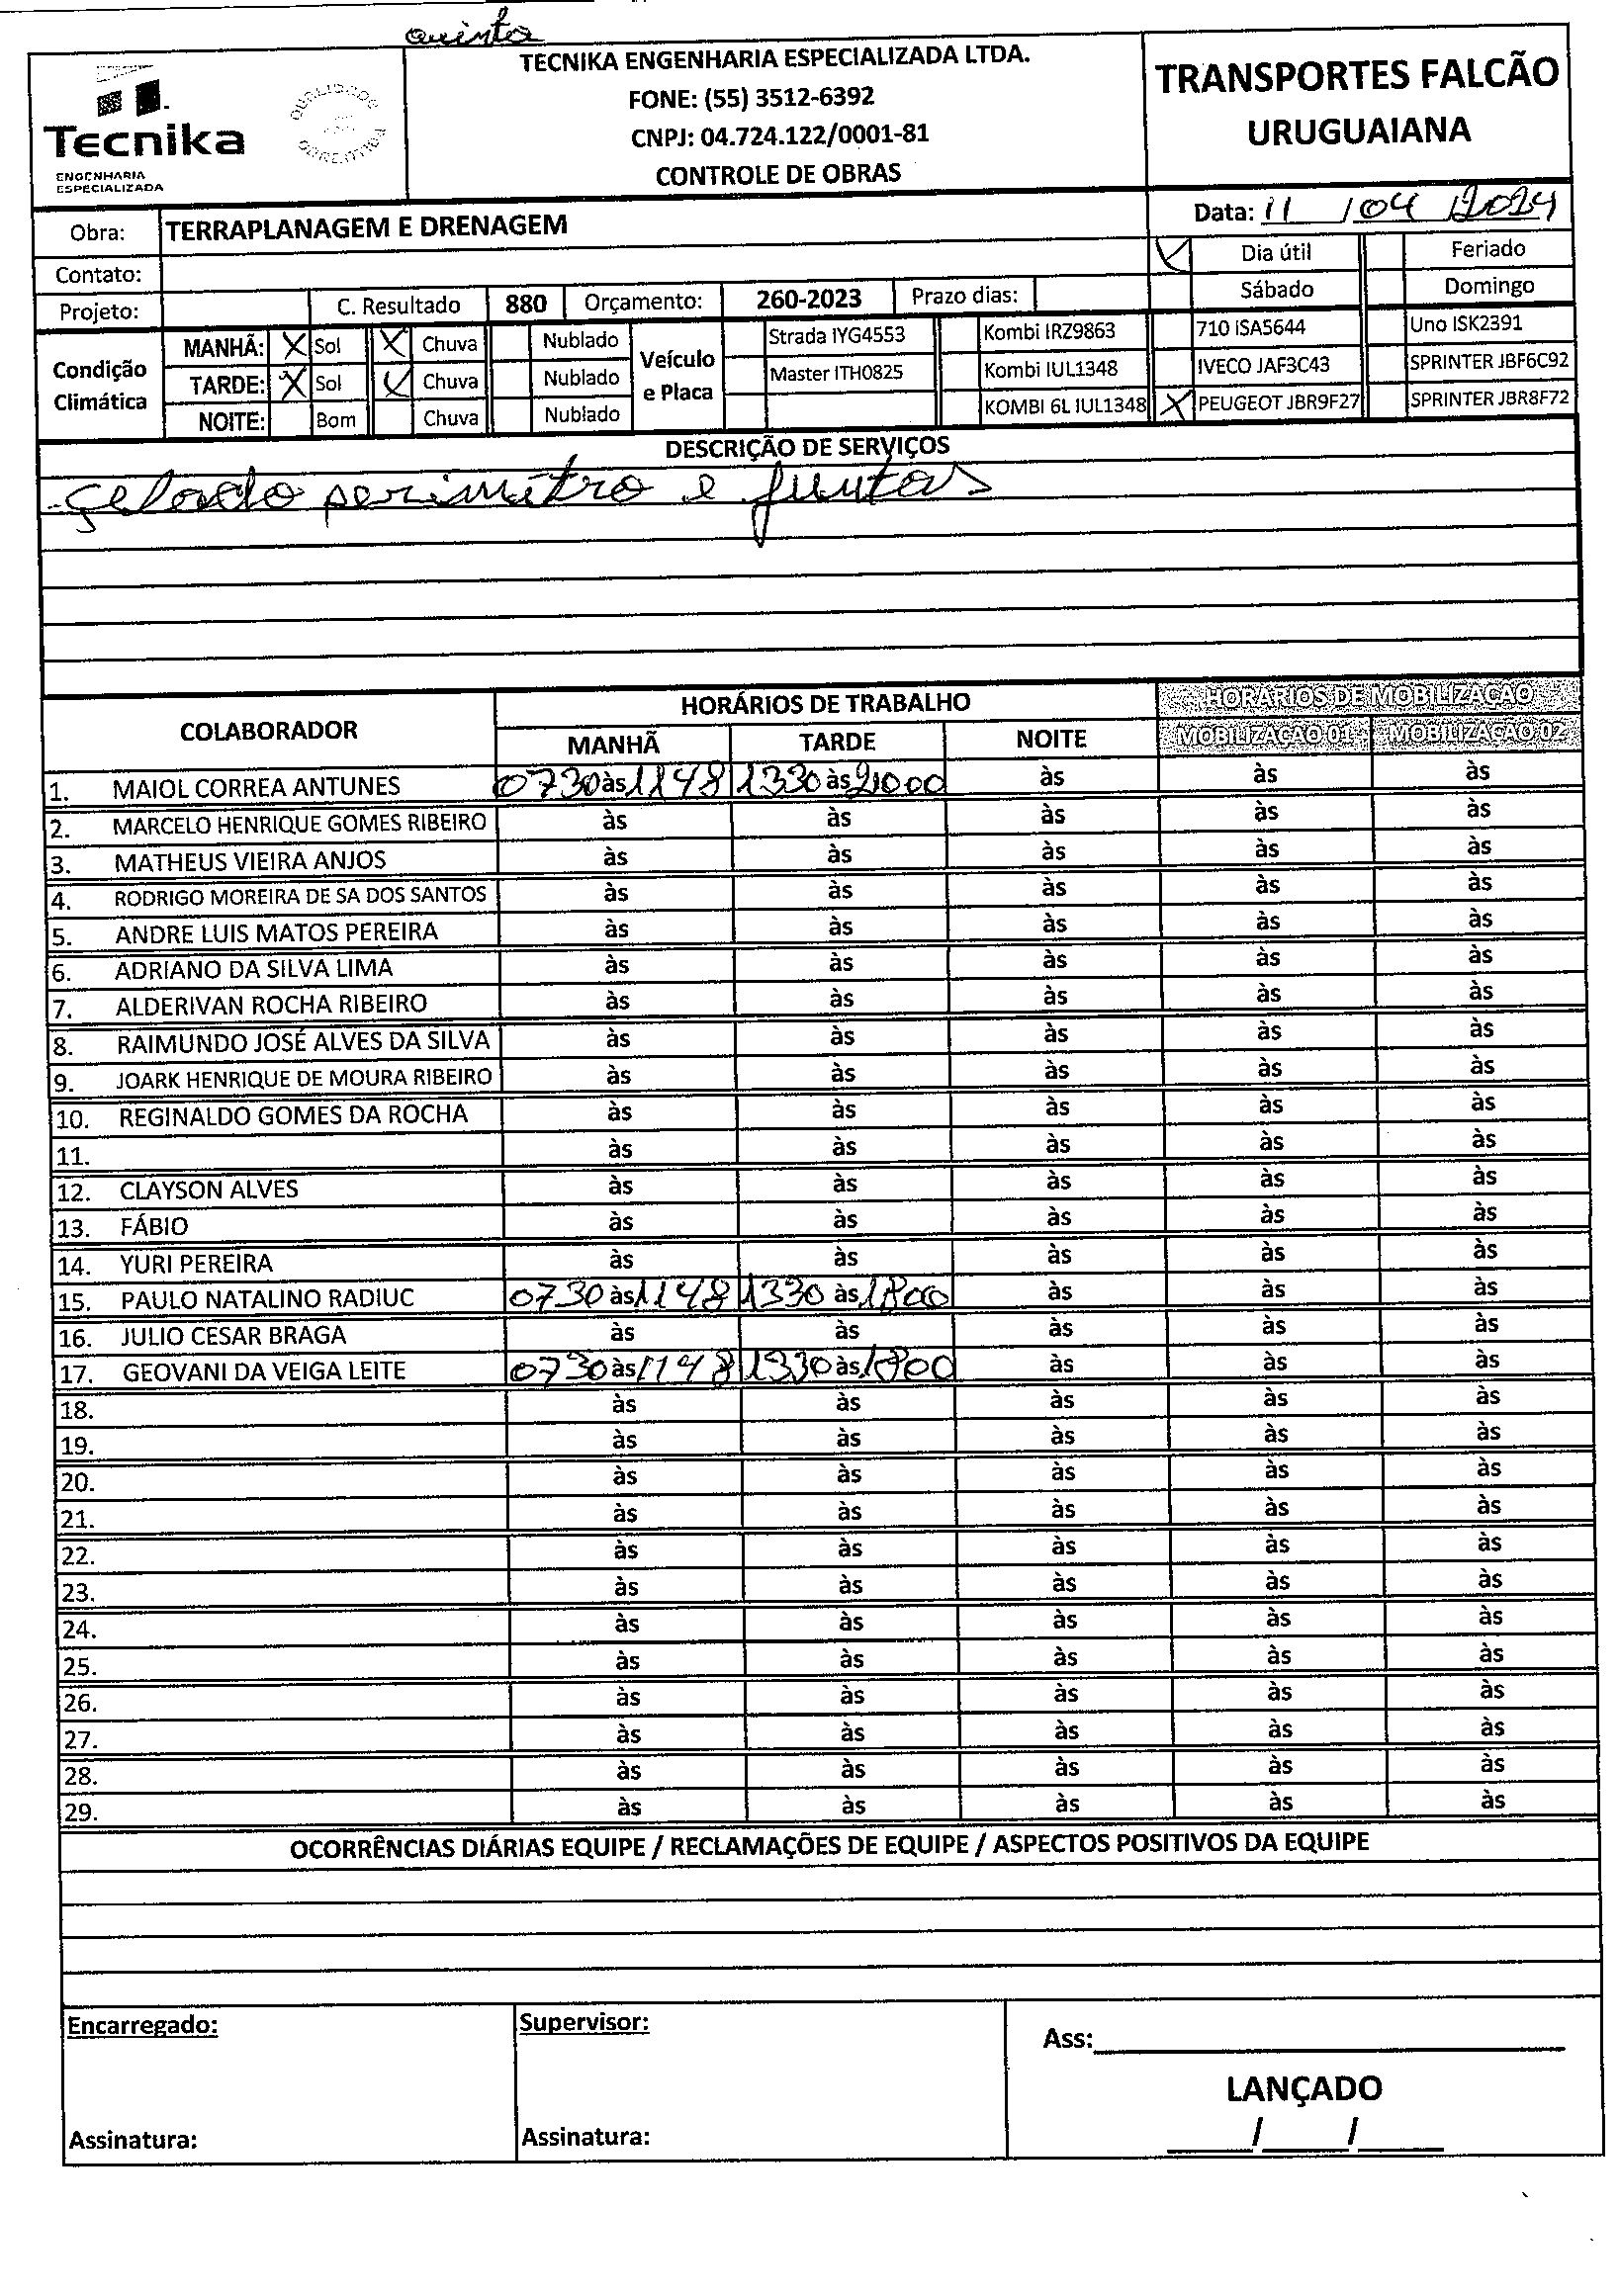 quinta
Tecnika
ENGENHARIA
ESPECIALIZADA
TECNIKA ENGENHARIA ESPECIALIZADA LTDA.
FONE: (55) 3512-6392
CNPJ: 04.724.122/0001-81
CONTROLE DE OBRAS
TRANSPORTES FALCÃO
URUGUAIANA
Obra: TERRAPLANAGEM E DRENAGEM
Data: 11 / 04 / 2024
Contato:
Dia útil Feriado
Projeto: C. Resultado 880 Orçamento: 260-2023 Prazo dias:
Sábado Domingo
Condição Climática
MANHÃ: X Sol X Chuva Nublado
TARDE: X Sol Chuva Nublado
NOITE: Bom Chuva Nublado
Veículo e Placa
Strada IYG4553 Kombi IRZ9863 710 ISA5644 Uno ISK2391
Master ITH0825 Kombi IUL1348 IVECO JAF3C43 SPRINTER JBF6C92
KOMBI 6L IUL1348 X PEUGEOT JBR9F27 SPRINTER JBR8F72
DESCRIÇÃO DE SERVIÇOS
perimétro e juntas
COLABORADOR HORÁRIOS DE TRABALHO HORÁRIOS DE MOBILIZAÇÃO
MANHÃ TARDE NOITE MOBILIZAÇÃO 01 MOBILIZAÇÃO 02
1. MAIOL CORREA ANTUNES 0730 às 1148 1330 às às às às
2. MARCELO HENRIQUE GOMES RIBEIRO às às às às às
3. MATHEUS VIEIRA ANJOS às às às às às
4. RODRIGO MOREIRA DE SA DOS SANTOS às às às às às
5. ANDRE LUIS MATOS PEREIRA às às às às às
6. ADRIANO DA SILVA LIMA às às às às às
7. ALDERIVAN ROCHA RIBEIRO às às às às às
8. RAIMUNDO JOSÉ ALVES DA SILVA às às às às às
9. JOARK HENRIQUE DE MOURA RIBEIRO às às às às às
10. REGINALDO GOMES DA ROCHA às às às às às
11. às às às às às
12. CLAYSON ALVES às às às às às
13. FÁBIO às às às às às
14. YURI PEREIRA às às às às às
15. PAULO NATALINO RADIUC 0730 às 1148 1330 às 1800 às às às
16. JULIO CESAR BRAGA às às às às às
17. GEOVANI DA VEIGA LEITE 0730 às 1148 1330 às 1800 às às às
18. às às às às às
19. às às às às às
20. às às às às às
21. às às às às às
22. às às às às às
23. às às às às às
24. às às às às às
25. às às às às às
26. às às às às às
27. às às às às às
28. às às às às às
29. às às às às às
OCORRÊNCIAS DIÁRIAS EQUIPE / RECLAMAÇÕES DE EQUIPE / ASPECTOS POSITIVOS DA EQUIPE
Encarregado: Supervisor: Ass:
LANÇADO
Assinatura: Assinatura: / /